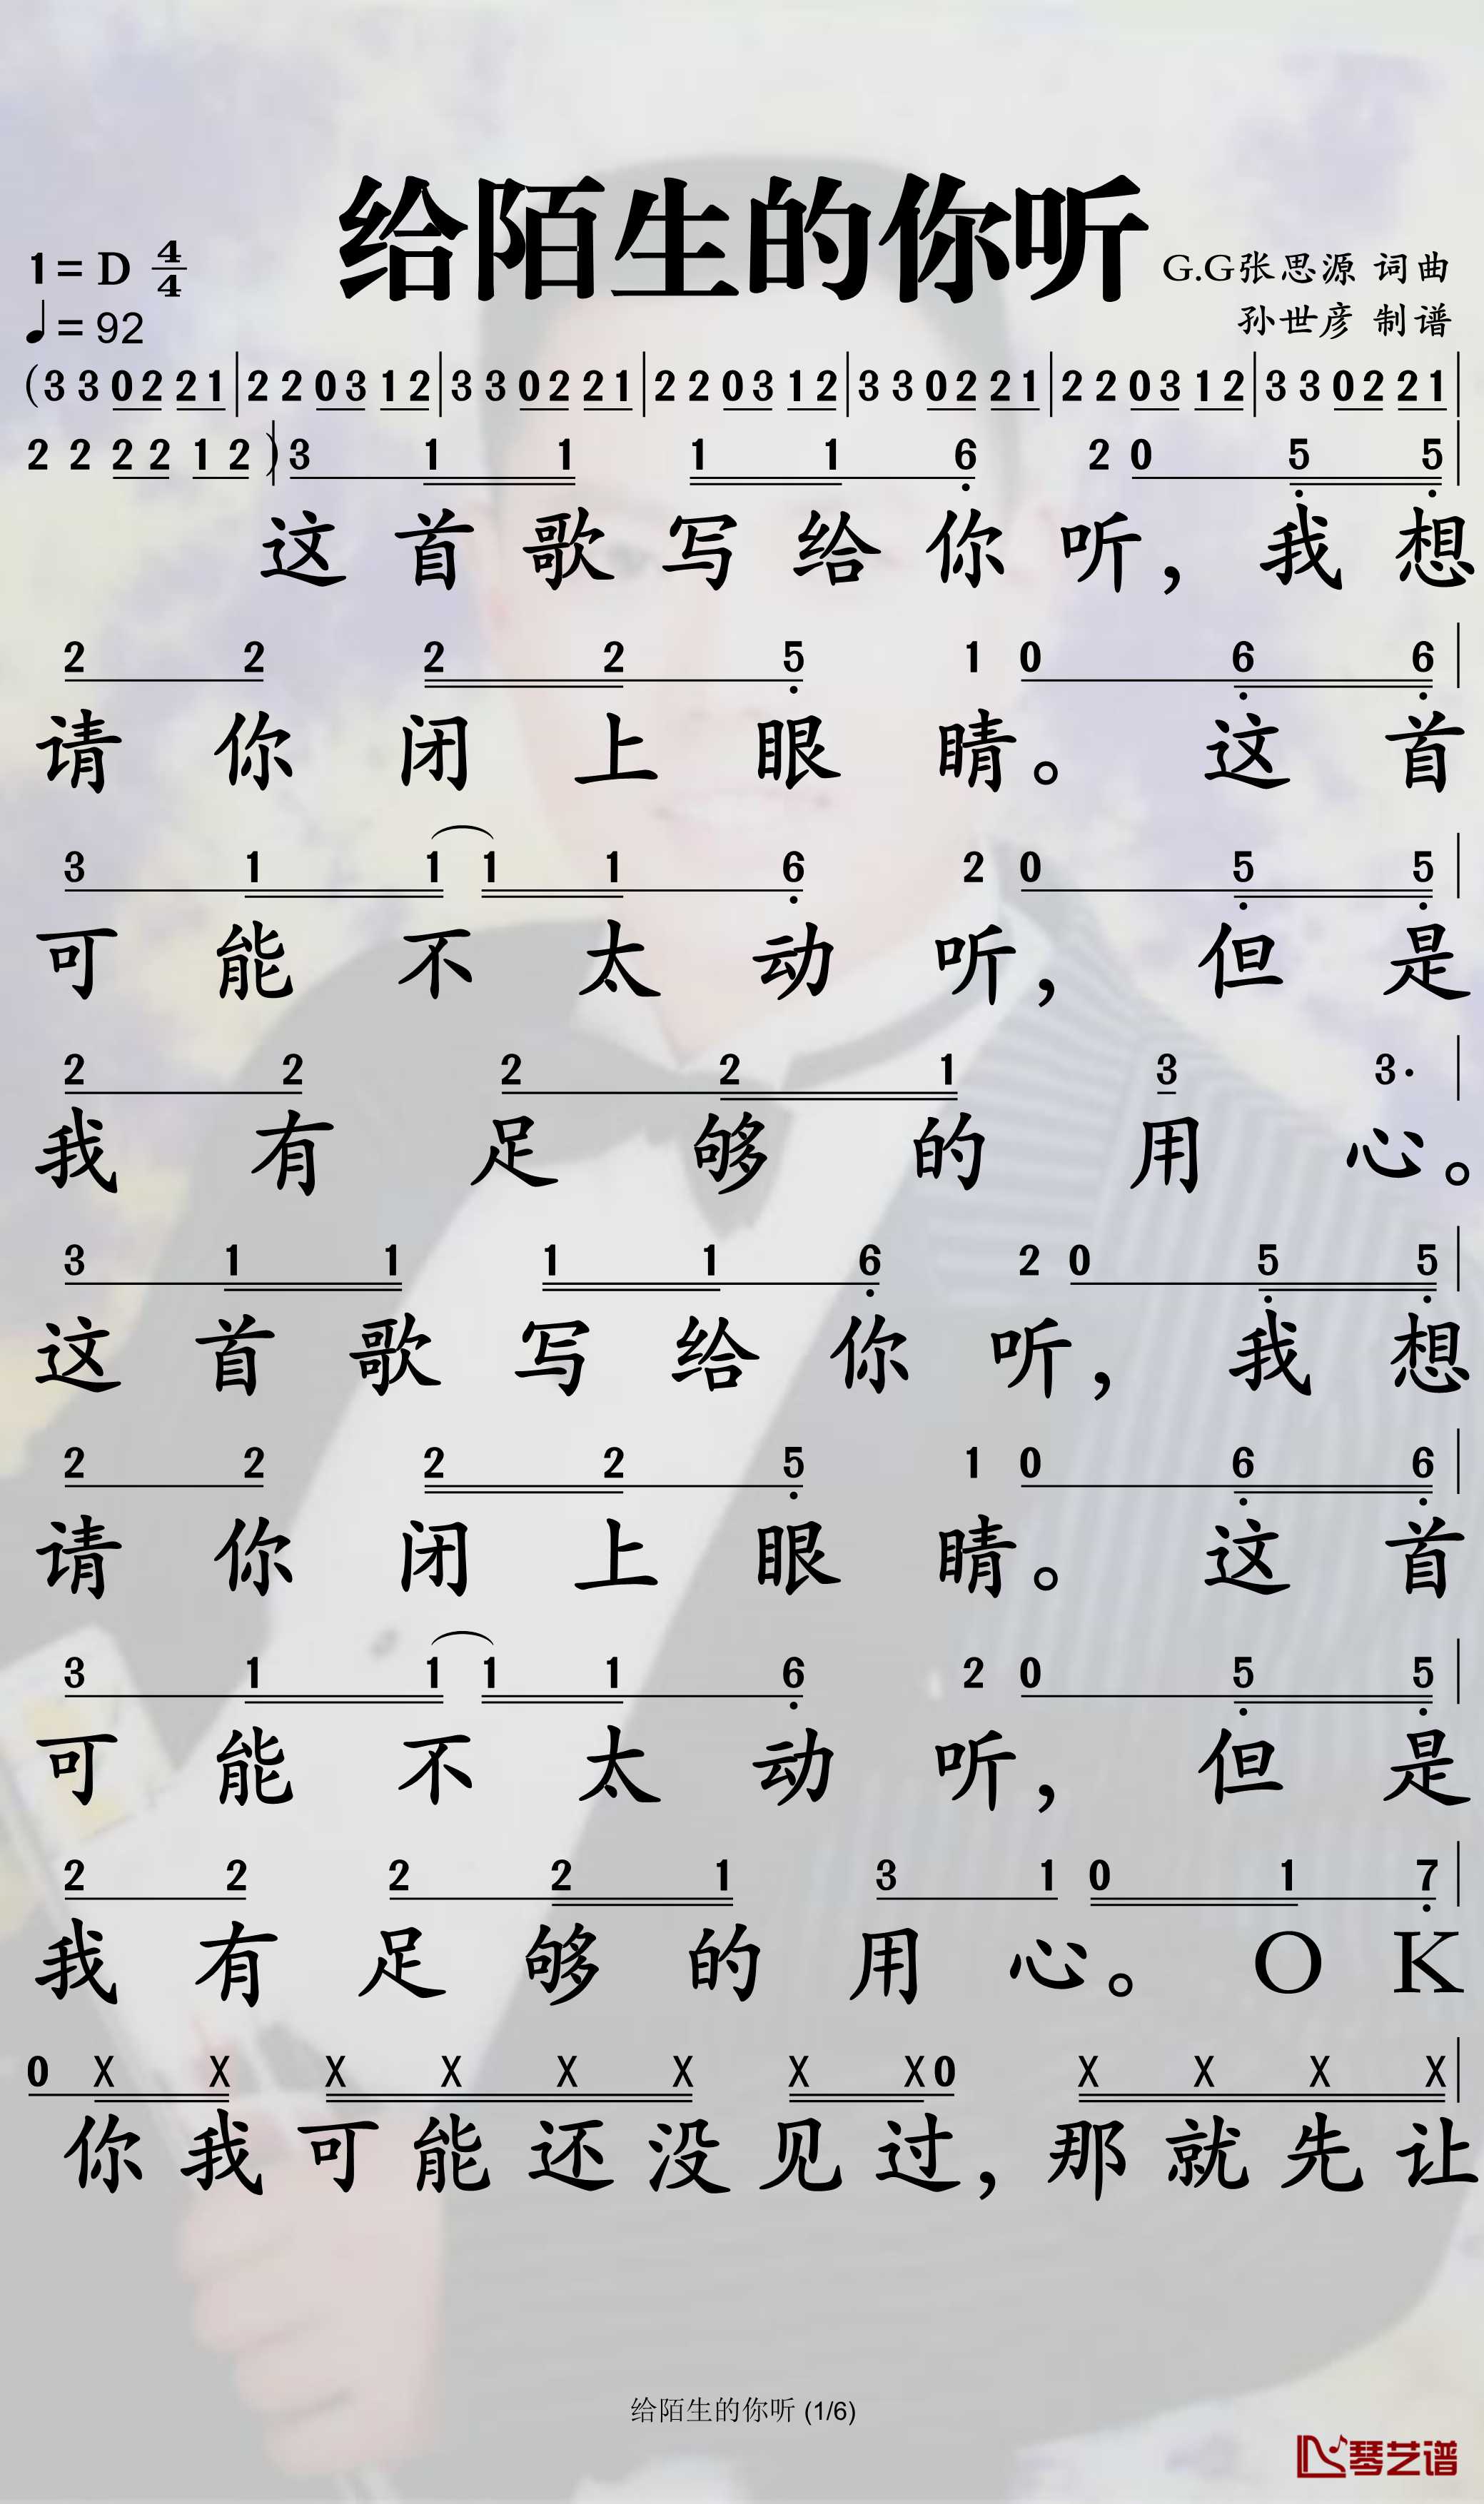 给陌生的你听
1=D 4/4
G.G张思源 词曲
♩=92
孙世彦 制谱
(3 3 0 2 2 1 | 2 2 0 3 1 2 | 3 3 0 2 2 1 | 2 2 0 3 1 2 | 3 3 0 2 2 1 | 2 2 0 3 1 2 | 3 3 0 2 2 1 |
2 2 2 2 1 2 ) | 3 1 1 1 1 6 2 0 5 5 |
这首歌写给你听，我想
2 2 2 2 5 1 0 6 6 |
请你闭上眼睛。这首
3 1 1 1 1 6 2 0 5 5 |
可能不太动听，但是
2 2 2 2 1 3 3· |
我有足够的用心。
3 1 1 1 1 6 2 0 5 5 |
这首歌写给你听，我想
2 2 2 2 5 1 0 6 6 |
请你闭上眼睛。这首
3 1 1 1 1 6 2 0 5 5 |
可能不太动听，但是
2 2 2 2 1 3 1 0 1 7 |
我有足够的用心。O K
0 X X X X X X X X 0 X X X X |
你我可能还没见过，那就先让
给陌生的你听 (1/6)
琴艺谱